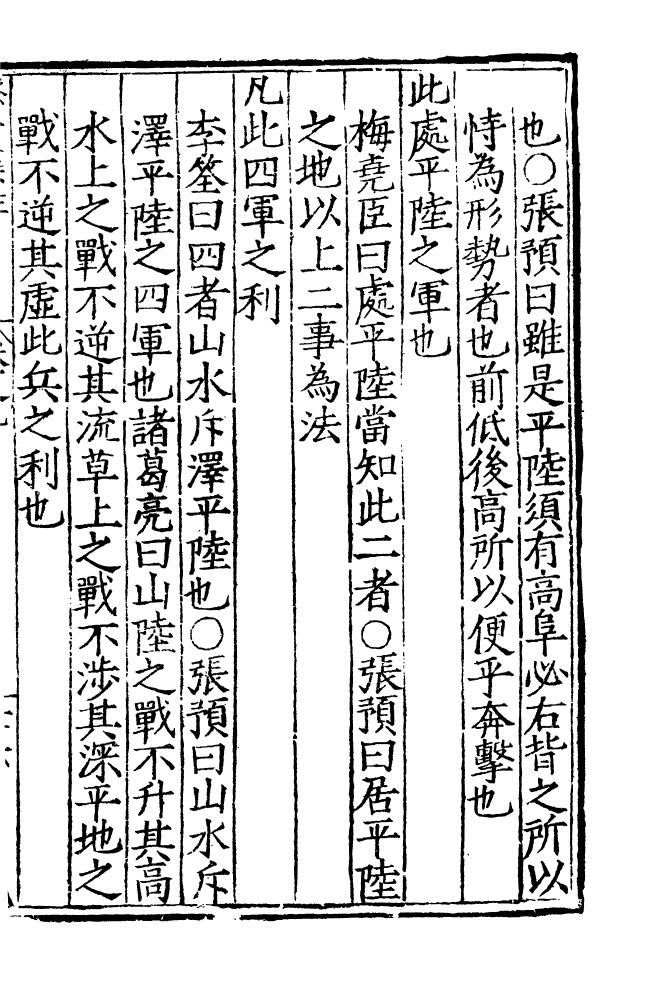 也○張預曰雖是平陸須有高阜必右背之所以
恃為形勢者也前低後高所以便乎奔擊也
此處平陸之軍也
梅堯臣曰處平陸當知此二者○張預曰居平陸
之地以上二事為法
凡此四軍之利
李筌曰四者山水斥澤平陸也○張預曰山水斥
澤平陸之四軍也諸葛亮曰山陸之戰不升其高
水上之戰不逆其流草上之戰不涉其深平地之
戰不逆其虛此兵之利也